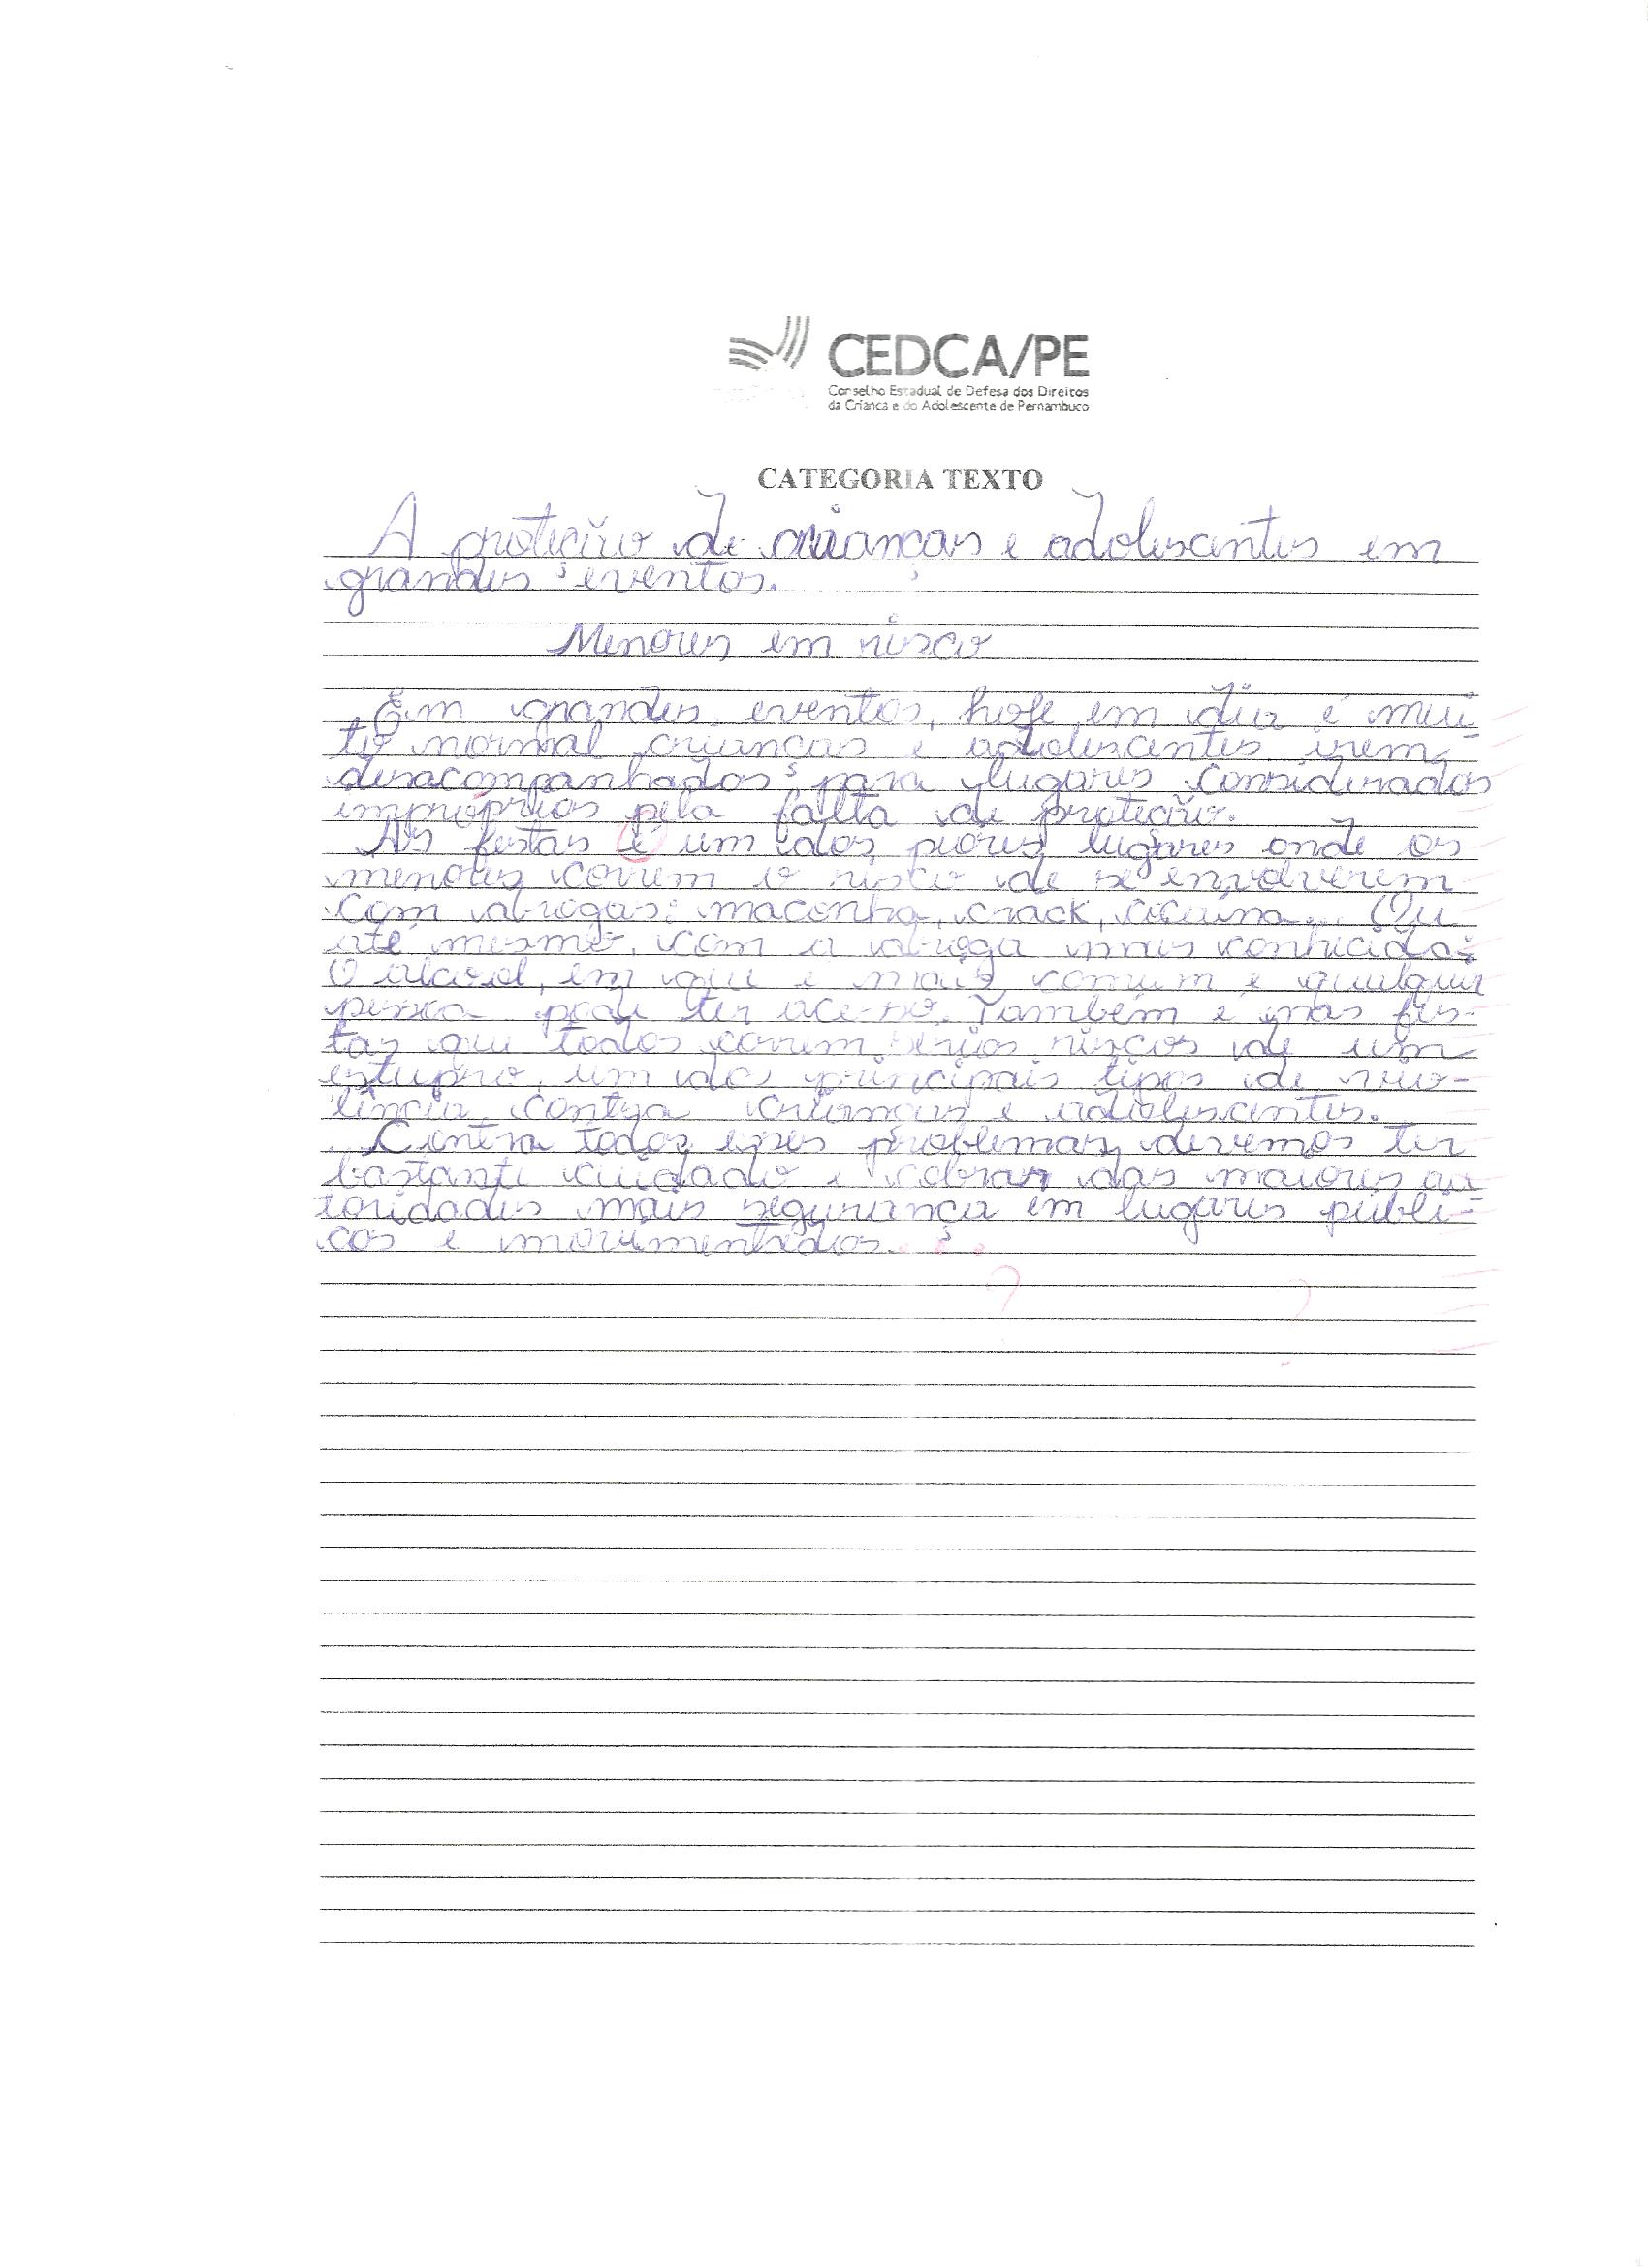 CEDCA/PE
Conselho Estadual de Defesa dos Direitos
da Criança e do Adolescente de Pernambuco
CATEGORIA TEXTO
A proteção de crianças e adolescentes em
grandes eventos.
Menores em risco
Em grandes eventos, hoje em dia é mui
to normal crianças e adolescentes irem
desacompanhados para lugares considerados
impróprios pela falta de proteção.
As festas é um dos piores lugares onde os
menores correm o risco de se envolverem
com drogas: maconha, crack, cocaína... Ou
até mesmo, com a droga mais conhecida:
O álcool, em que é mais comum e qualquer
pessoa pode ter acesso. Também é nas fes-
tas que todos correm sérios riscos de um
estupro, um dos principais tipos de vio-
lência contra crianças e adolescentes.
Contra todos esses problemas, devemos ter
bastante cuidado e cobrar das maiores au
toridades mais segurança em lugares públi-
cos e movimentados.